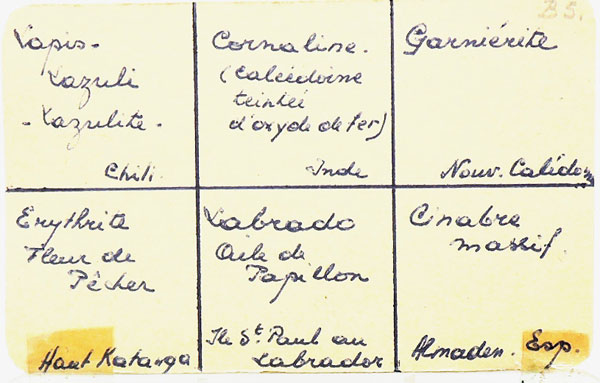 B5.
Lapis-
Lazuli
- Lazulite -
Chili.
Cornaline.
(Calcédoine
teintée
d'oxyde de fer)
Inde
Garniérite
Nouv. Calédon
Erythrite
Fleur de
Pêcher
Haut Katanga
Labrado
Aile de
Papillon
Ile St. Paul au
Labrador
Cinabre
massif.
Almaden. Esp.